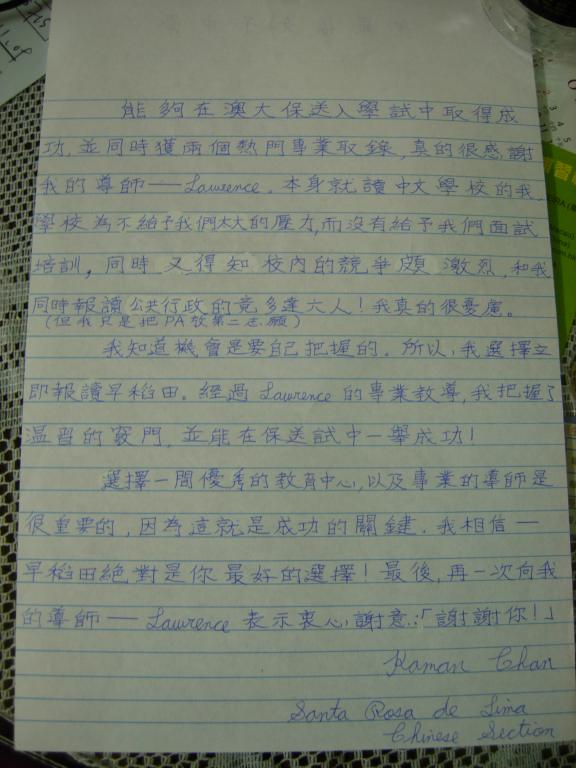 能夠在澳大保送入學試中取得成
功,並同時獲兩個熱門專業取錄,真的很感謝
我的導師——Lawrence。本身就讀中文學校的我,
學校為不給予我們太大的壓力,而沒有給予我們面試
培訓,同時又得知校內的競爭頗激烈,和我
同時報讀公共行政的竟多達六人!我真的很憂慮。
(但我只是把PA放第二志願)
我知道機會是要自己把握的。所以,我選擇立
即報讀早稻田。經過Lawrence的專業教導,我把握了
溫習的竅門,並能在保送試中一舉成功!
選擇一間優秀的教育中心,以及專業的導師是
很重要的,因為這就是成功的關鍵。我相信—
早稻田絕對是你最好的選擇!最後,再一次向我
的導師——Lawrence表示衷心謝意:「謝謝你!」
Kaman Chan
Santa Rosa de Lima
Chinese Section